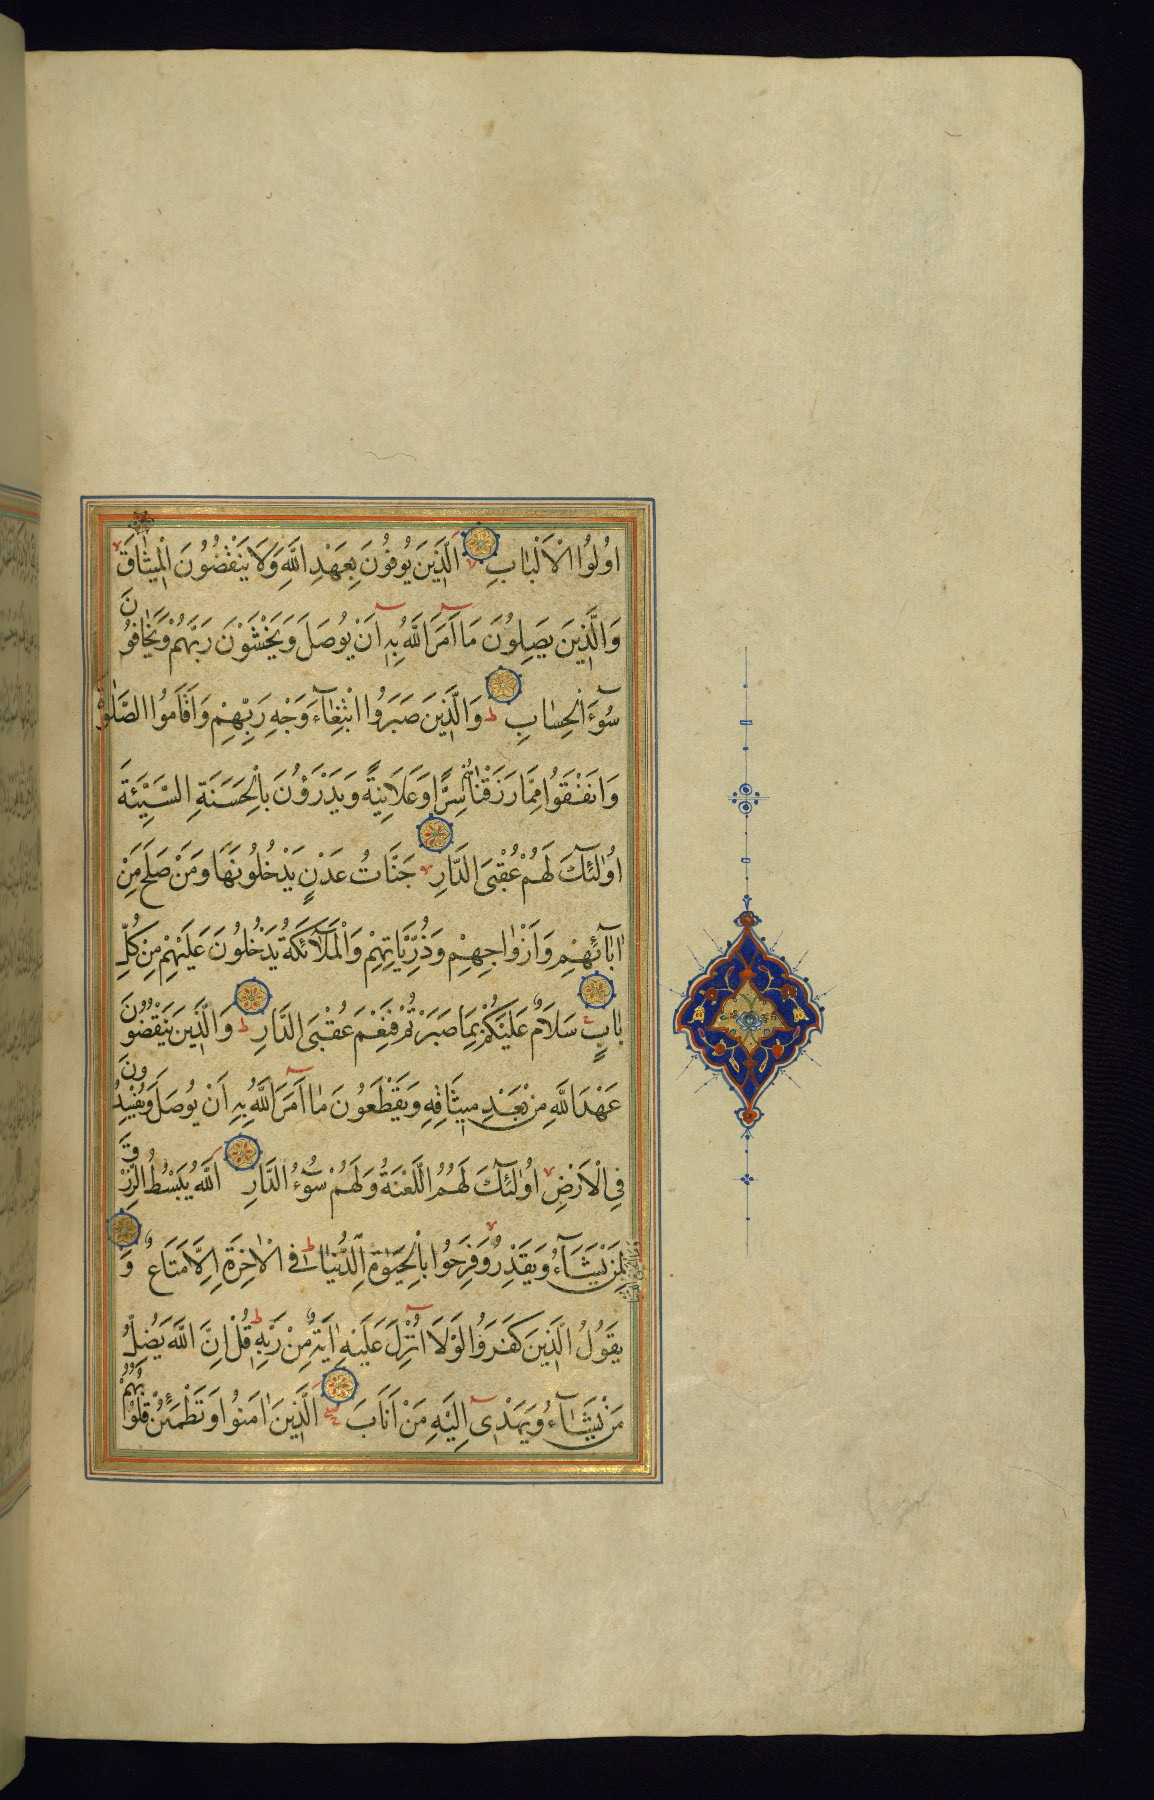 اُولُوا الْاَلْبَابِ اَلَّذِينَ يُوفُونَ بِعَهْدِ اللَّهِ وَلَا يَنْقُضُونَ الْمِيثَاقَ
وَالَّذِينَ يَصِلُونَ مَا اَمَرَ اللَّهُ بِهِ اَنْ يُوصَلَ وَيَخْشَوْنَ رَبَّهُمْ وَيَخَافُونَ
سُوءَ الْحِسَابِ وَالَّذِينَ صَبَرُوا ابْتِغَاءَ وَجْهِ رَبِّهِمْ وَاَقَامُوا الصَّلٰوةَ
وَاَنْفَقُوا مِمَّا رَزَقْنَاهُمْ سِرًّا وَعَلَانِيَةً وَيَدْرَؤُنَ بِالْحَسَنَةِ السَّيِّئَةَ
اُولٰئِكَ لَهُمْ عُقْبَى الدَّارِ جَنَّاتُ عَدْنٍ يَدْخُلُونَهَا وَمَنْ صَلَحَ مِنْ
اٰبَائِهِمْ وَاَزْوَاجِهِمْ وَذُرِّيَّاتِهِمْ وَالْمَلَائِكَةُ يَدْخُلُونَ عَلَيْهِمْ مِنْ كُلِّ
بَابٍ سَلَامٌ عَلَيْكُمْ بِمَا صَبَرْتُمْ فَنِعْمَ عُقْبَى الدَّارِ وَالَّذِينَ يَنْقُضُونَ
عَهْدَ اللَّهِ مِنْ بَعْدِ مِيثَاقِهِ وَيَقْطَعُونَ مَا اَمَرَ اللَّهُ بِهِ اَنْ يُوصَلَ وَيُفْسِدُونَ
فِي الْاَرْضِ اُولٰئِكَ لَهُمُ اللَّعْنَةُ وَلَهُمْ سُوءُ الدَّارِ اَللَّهُ يَبْسُطُ الرِّزْقَ
لِمَنْ يَشَاءُ وَيَقْدِرُ وَفَرِحُوا بِالْحَيٰوةِ الدُّنْيَا فِي الْاٰخِرَةِ اِلَّا مَتَاعٌ وَ
يَقُولُ الَّذِينَ كَفَرُوا لَوْلَا اُنْزِلَ عَلَيْهِ اٰيَةٌ مِنْ رَبِّهِ قُلْ اِنَّ اللَّهَ يُضِلُّ
مَنْ يَشَاءُ وَيَهْدِي اِلَيْهِ مَنْ اَنَابَ اَلَّذِينَ اٰمَنُوا وَتَطْمَئِنُّ قُلُوبُهُمْ